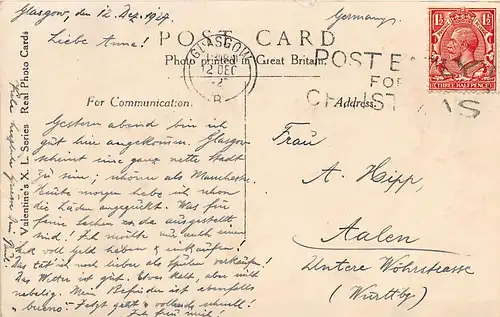 Glasgow, den 12 Dez. 1924.
Germany
Liebe Anna!
POST CARD
Photo printed in Great Britain.
GLASGOW
12 DEC
B
POST EARLY
FOR
CHRISTMAS
THREE HALF PENCE
For Communication.
Address.
Valentine's X. L. Series Real Photo Cards
Gestern abend bin ich
gut hier angekommen. Glasgow
scheint eine ganz nette Stadt
zu sein; schöner als Manchester.
Heute morgen habe ich schon
die Läden angeguckt. Was für
feine Sachen es da ausgestellt
sind! Ich möchte nur auch einen
Sack voll Geld haben & einkaufen!
Das tät' ich viel lieber als Spielen verkaufen!
Das Wetter ist gut. Etwas kalt, aber nicht
nebelig. Mein Befinden ist ebenfalls
"bueno". Jetzt geht's vollends schnell!
Ich freu' mich!
Frau
A. Hipp,
Aalen
Untere Wöhrstrasse
(Württbg.)